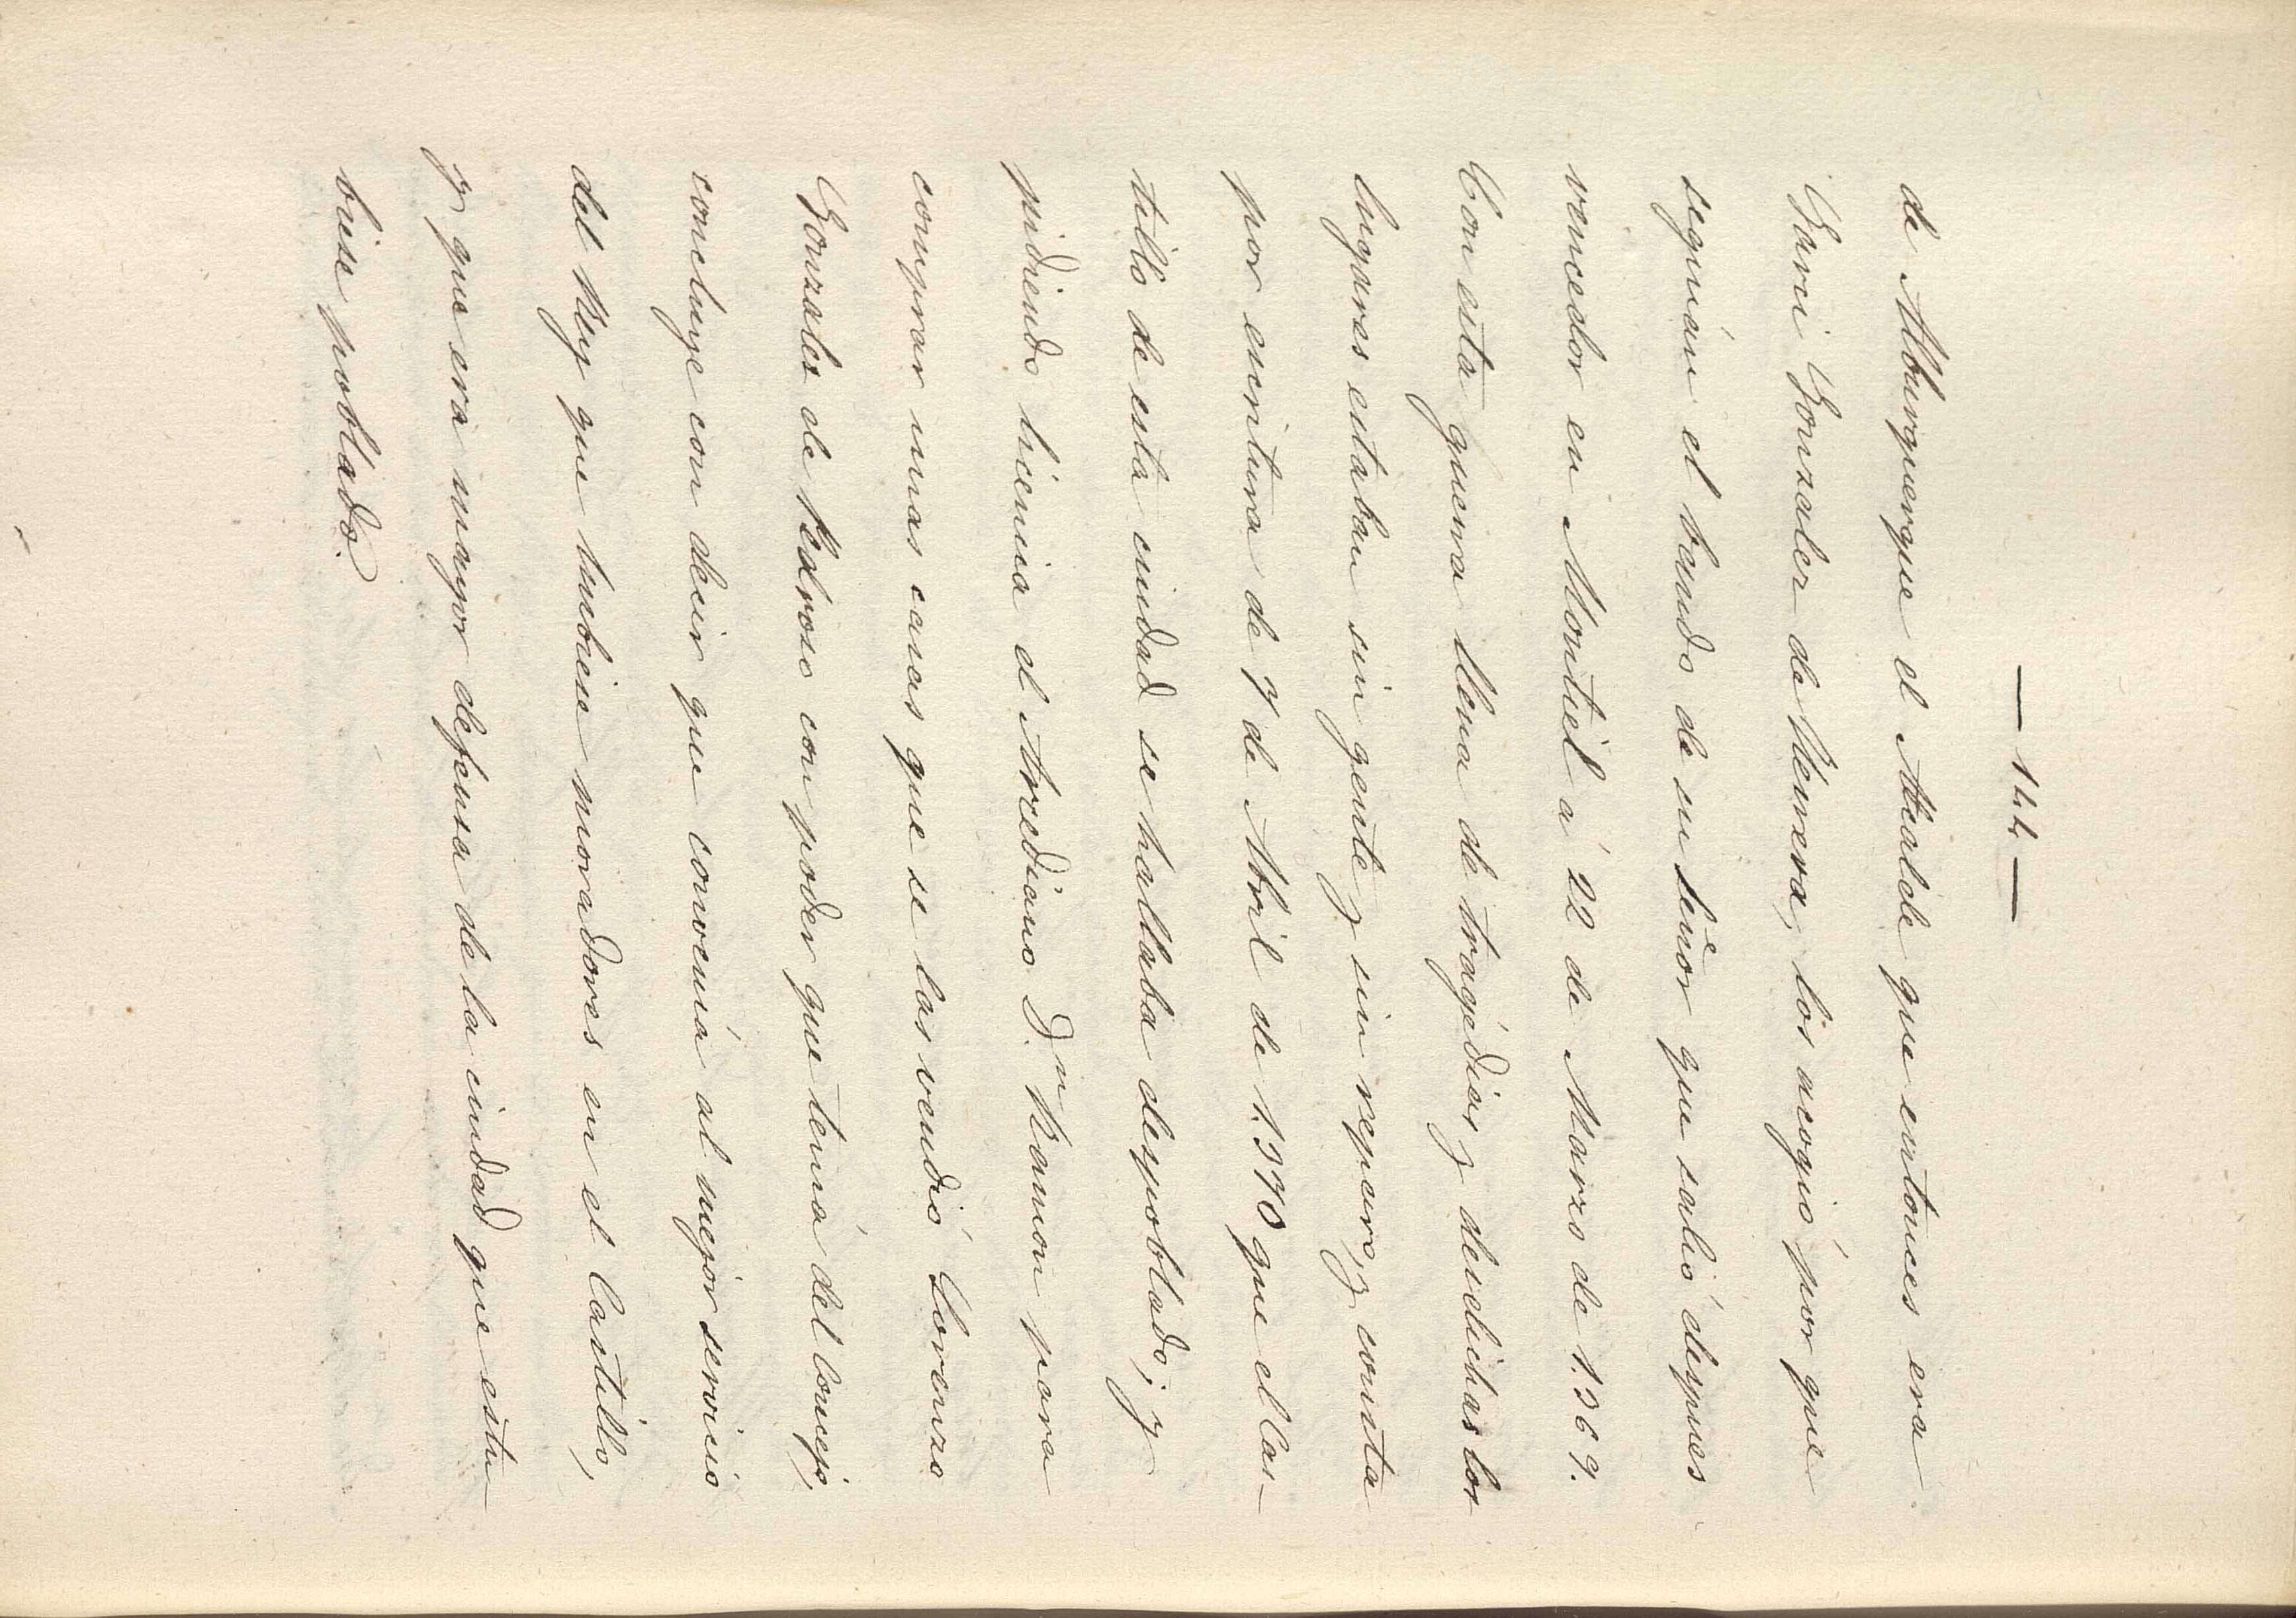 — 144 —
de Alburquerque el Alcalde que entonces era
Garci Gonzalez de Herrera, los acogió por que
seguian el bando de su Señor que salió despues
vencedor en Montiel á 22 de Marzo de 1.369.
Con esta guerra llena de tragédias y desdichas los
lugares estaban sin gente y sin reparo, y consta
por escritura de 7 de Abril de 1.370 que el Cas-
tillo de esta ciudad se hallaba despoblado; y
pidiendo licencia el Arcediano D.n Ramon para
comprar unas casas que se las vendió Lorenzo
Gonzales de Pedroso con poder que tenia del Concejo,
concluye con decir que convenia al mejor servicio
del Rey que hubiese moradores en el Castillo,
y que era mayor defensa de la ciudad que estu-
biese poblado.